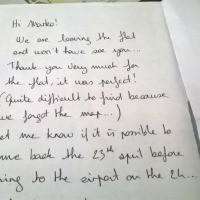 Hi Marko!
We are leaving the flat
and won't have see you...
Thank you very much for
the flat, it was perfect!
(Quite difficult to find because
we forgot the map...)
let me know if it is possible to
me back the 23th april before
ing to the airport on the 24...